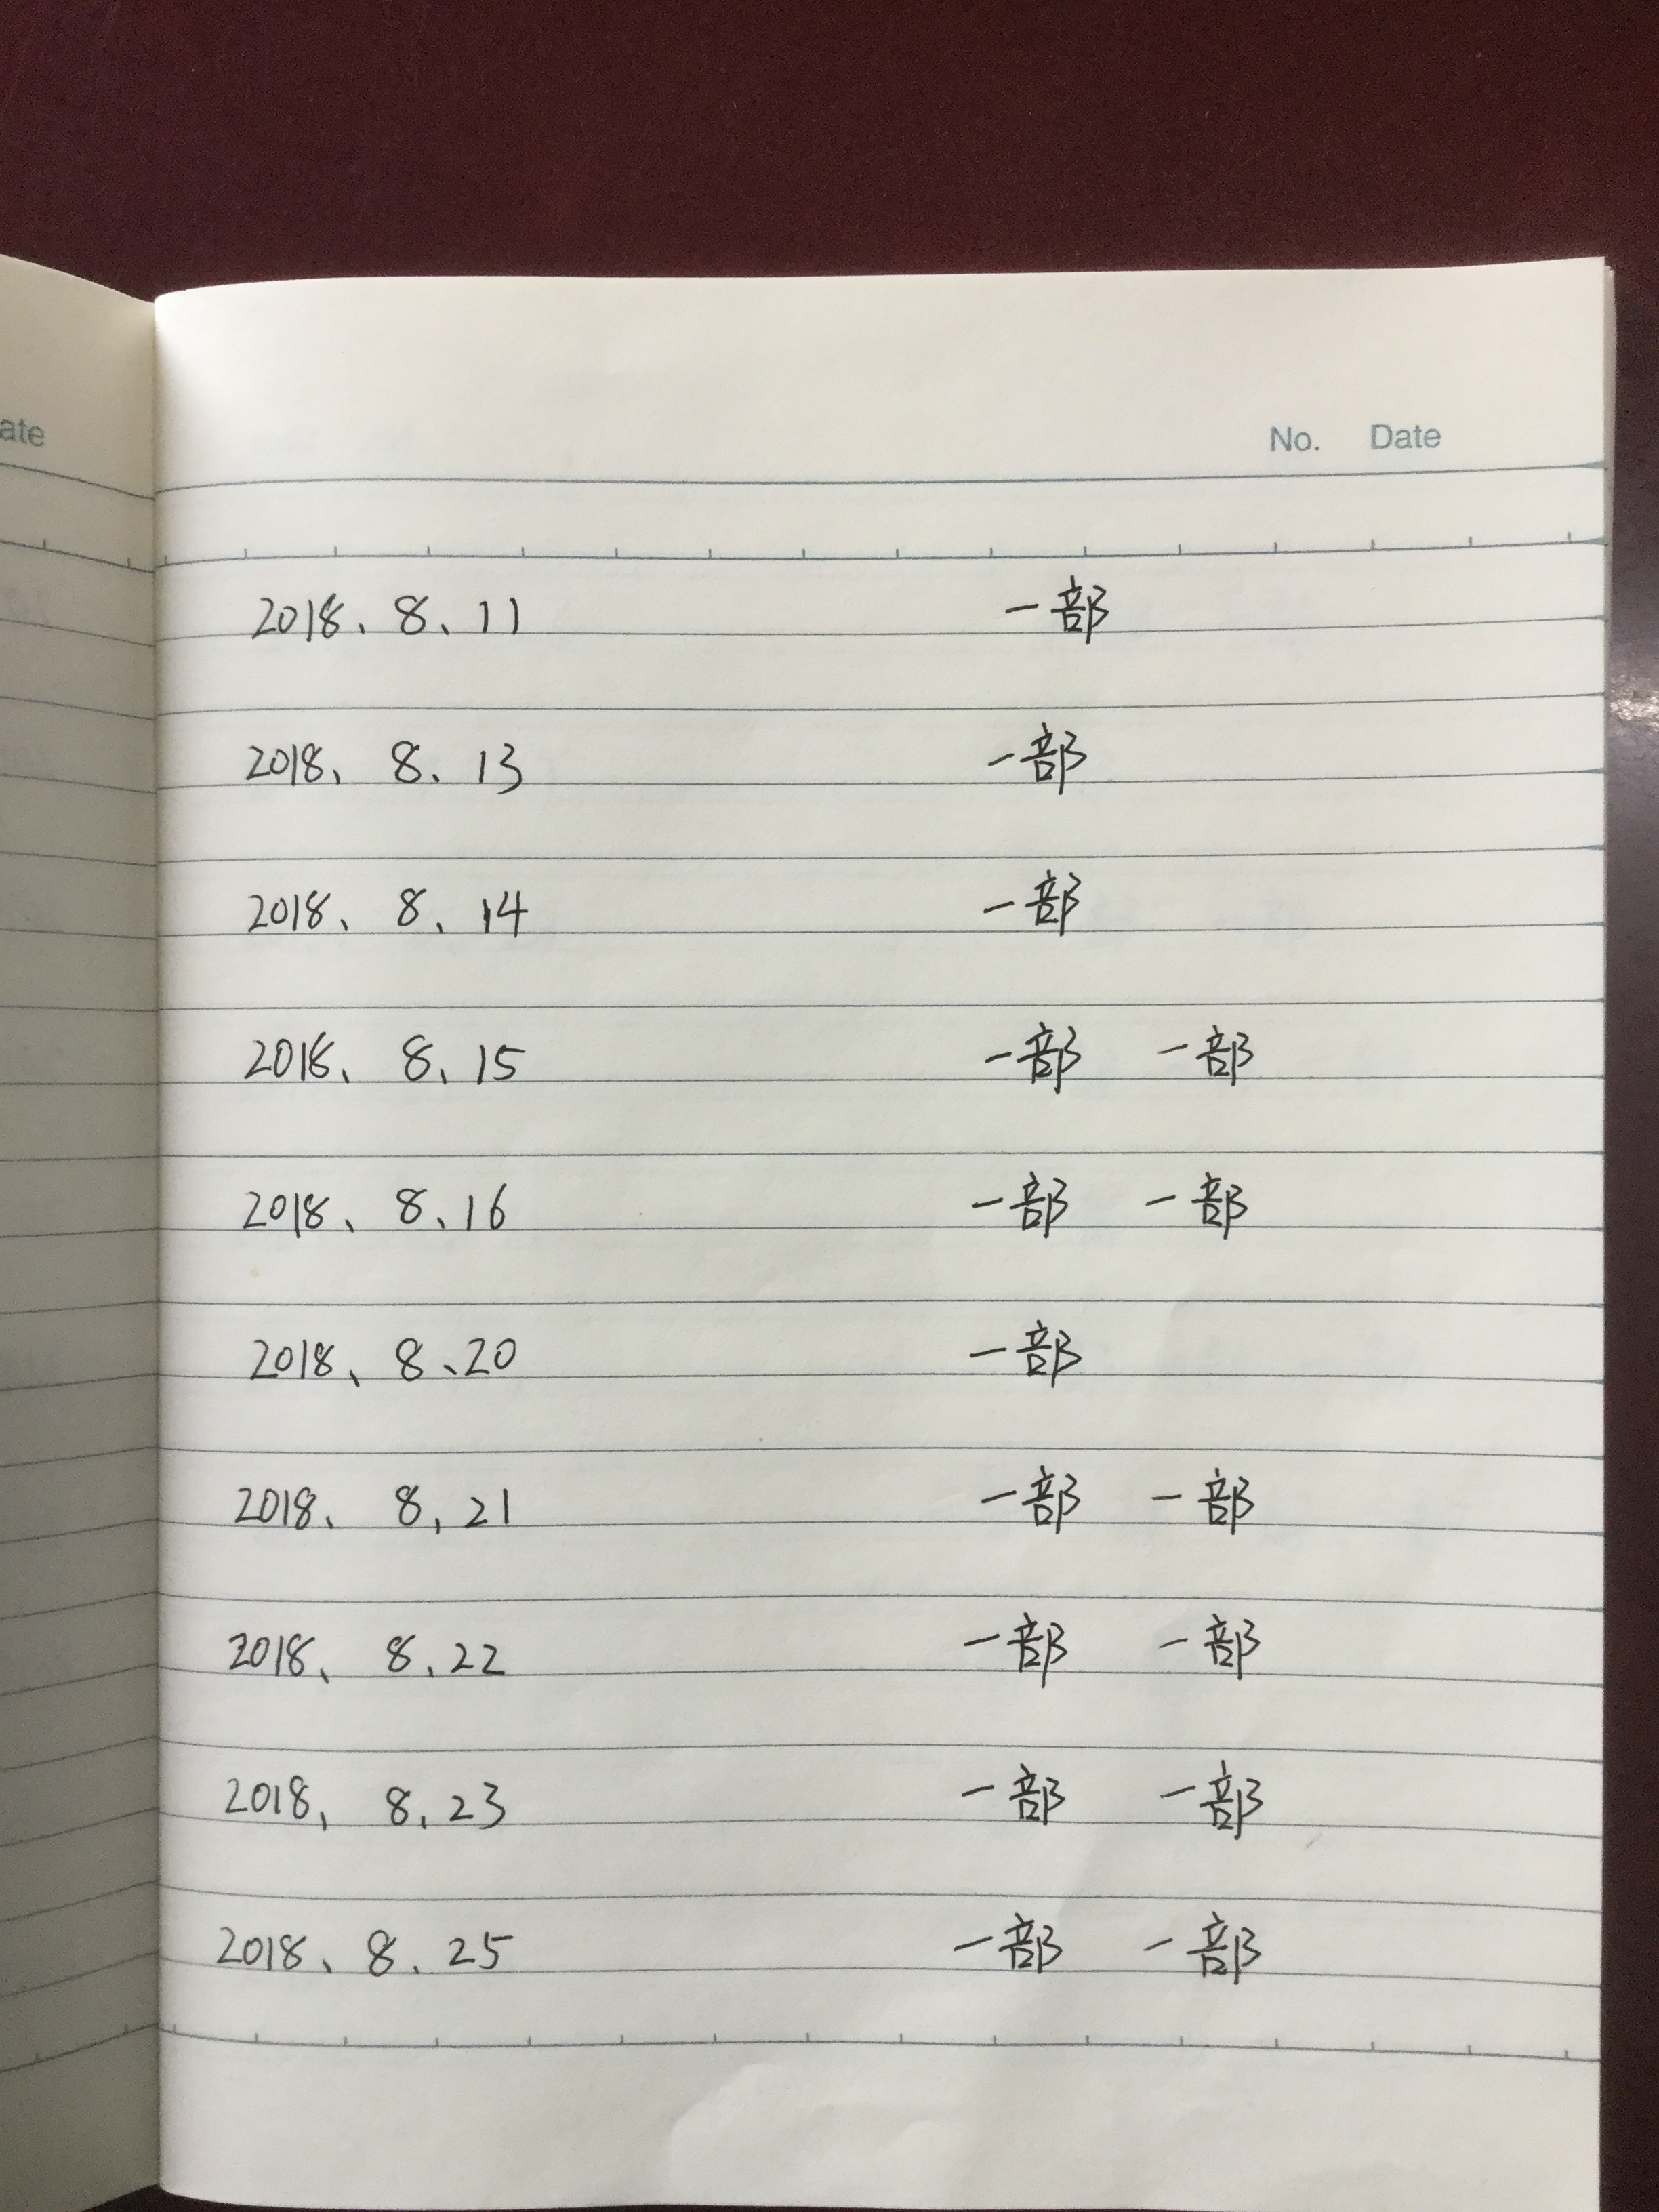 ate
No. Date
2018、8、11 一部
2018、8、13 一部
2018、8、14 一部
2018、8、15 一部 一部
2018、8、16 一部 一部
2018、8、20 一部
2018、8、21 一部 一部
2018、8、22 一部 一部
2018、8、23 一部 一部
2018、8、25 一部 一部